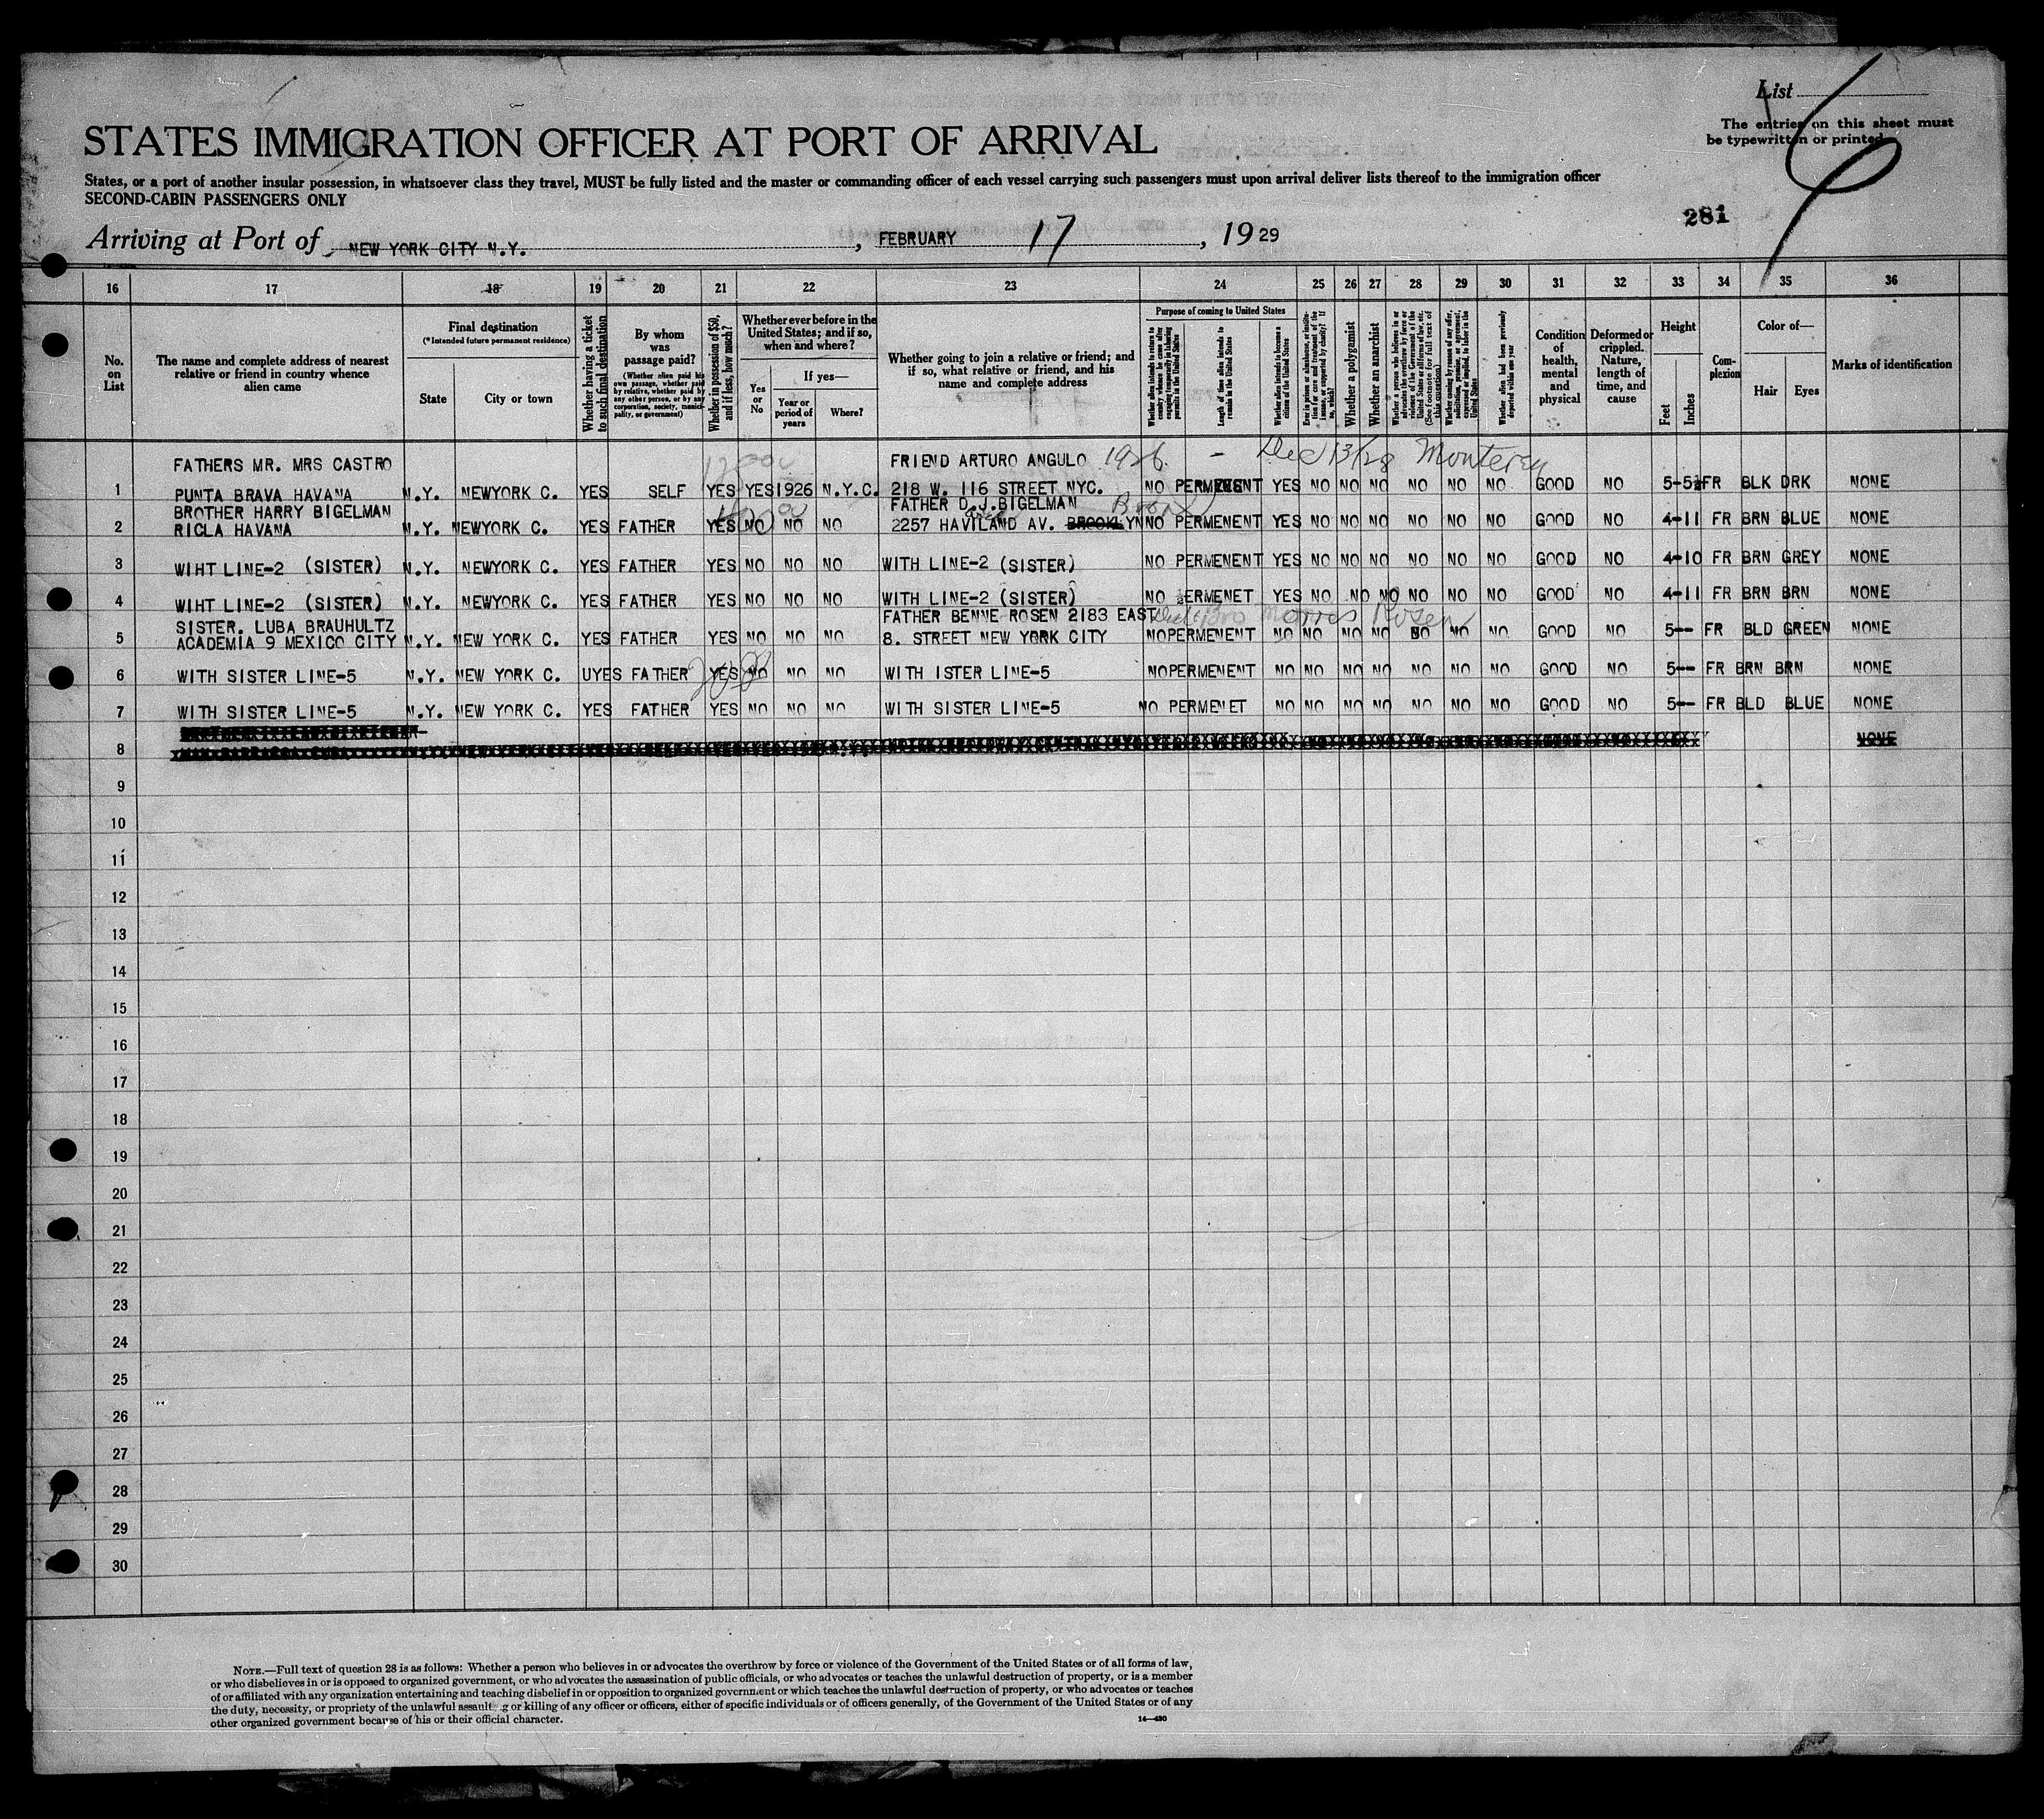 List
The entries on this sheet must
be typewritten or printed
STATES IMMIGRATION OFFICER AT PORT OF ARRIVAL
States, or a port of another insular possession, in whatsoever class they travel, MUST be fully listed and the master or commanding officer of each vessel carrying such passengers must upon arrival deliver lists thereof to the immigration officer
SECOND-CABIN PASSENGERS ONLY
281
Arriving at Port of NEW YORK CITY N.Y. , FEBRUARY 17 , 1929
16 17 18 19 20 21 22 23 24 25 26 27 28 29 30 31 32 33 34 35 36
No. on List
The name and complete address of nearest relative or friend in country whence alien came
Final destination
(*Intended future permanent residence)
State
City or town
Whether having a ticket to such final destination
By whom was passage paid?
(Whether alien paid his own passage, whether paid by relative, whether paid by any other person, or by any corporation, society, municipality, or government)
Whether in possession of $50, and if less, how much?
Whether ever before in the United States; and if so, when and where?
Yes or No
If yes—
Year or period of years
Where?
Whether going to join a relative or friend; and if so, what relative or friend, and his name and complete address
Purpose of coming to United States
Length of time alien intends to remain in the United States
Whether alien intends to become a citizen of the United States
Whether a polygamist
Whether an anarchist
Whether alien had been previously deported within one year
Condition of health, mental and physical
Deformed or crippled. Nature, length of time, and cause
Height
Feet
Inches
Complexion
Color of—
Hair
Eyes
Marks of identification
FATHERS MR. MRS CASTRO FRIEND ARTURO ANGULO 1926. - Dec 13/28 Monterey
1 PUNTA BRAVA HAVANA N.Y. NEWYORK C. YES SELF YES YES 1926 N.Y.C. 218 W. 116 STREET NYC. NO PERMENENT YES NO NO NO NO NO NO GOOD NO 5-5½ FR BLK DRK NONE
BROTHER HARRY BIGELMAN FATHER D.J.BIGELMAN Bronx
2 RICLA HAVANA N.Y. NEWYORK C. YES FATHER YES NO NO NO 2257 HAVILAND AV. BROOKLYN NO PERMENENT YES NO NO NO NO NO NO GOOD NO 4-11 FR BRN BLUE NONE
3 WIHT LINE-2 (SISTER) N.Y. NEWYORK C. YES FATHER YES NO NO NO WITH LINE-2 (SISTER) NO PERMENENT YES NO NO NO NO NO NO GOOD NO 4-10 FR BRN GREY NONE
4 WIHT LINE-2 (SISTER) N.Y. NEWYORK C. YES FATHER YES NO NO NO WITH LINE-2 (SISTER) NO PERMENET YES NO NO NO NO NO NO GOOD NO 4-11 FR BRN BRN NONE
SISTER. LUBA BRAUHULTZ FATHER BENNE ROSEN 2183 EAST Bro Morris Rosen
5 ACADEMIA 9 MEXICO CITY N.Y. NEW YORK C. YES FATHER YES NO NO NO 8. STREET NEW YORK CITY NOPERMENENT NO NO NO NO NO NO NO GOOD NO 5-- FR BLD GREEN NONE
6 WITH SISTER LINE-5 N.Y. NEW YORK C. UYES FATHER YES NO NO NO WITH ISTER LINE-5 NOPERMENENT NO NO NO NO NO NO NO GOOD NO 5-- FR BRN BRN NONE
7 WITH SISTER LINE-5 N.Y. NEW YORK C. YES FATHER YES NO NO NO WITH SISTER LINE-5 NO PERMENET NO NO NO NO NO NO NO GOOD NO 5-- FR BLD BLUE NONE
8 NONE
9
10
11
12
13
14
15
16
17
18
19
20
21
22
23
24
25
26
27
28
29
30
NOTE.—Full text of question 28 is as follows: Whether a person who believes in or advocates the overthrow by force or violence of the Government of the United States or of all forms of law,
or who disbelieves in or is opposed to organized government, or who advocates the assassination of public officials, or who advocates or teaches the unlawful destruction of property, or is a member
of or affiliated with any organization entertaining and teaching disbelief in or opposition to organized government or which teaches the unlawful destruction of property, or who advocates or teaches
the duty, necessity, or propriety of the unlawful assaulting or killing of any officer or officers, either of specific individuals or of officers generally, of the Government of the United States or of any
other organized government because of his or their official character.
14—430